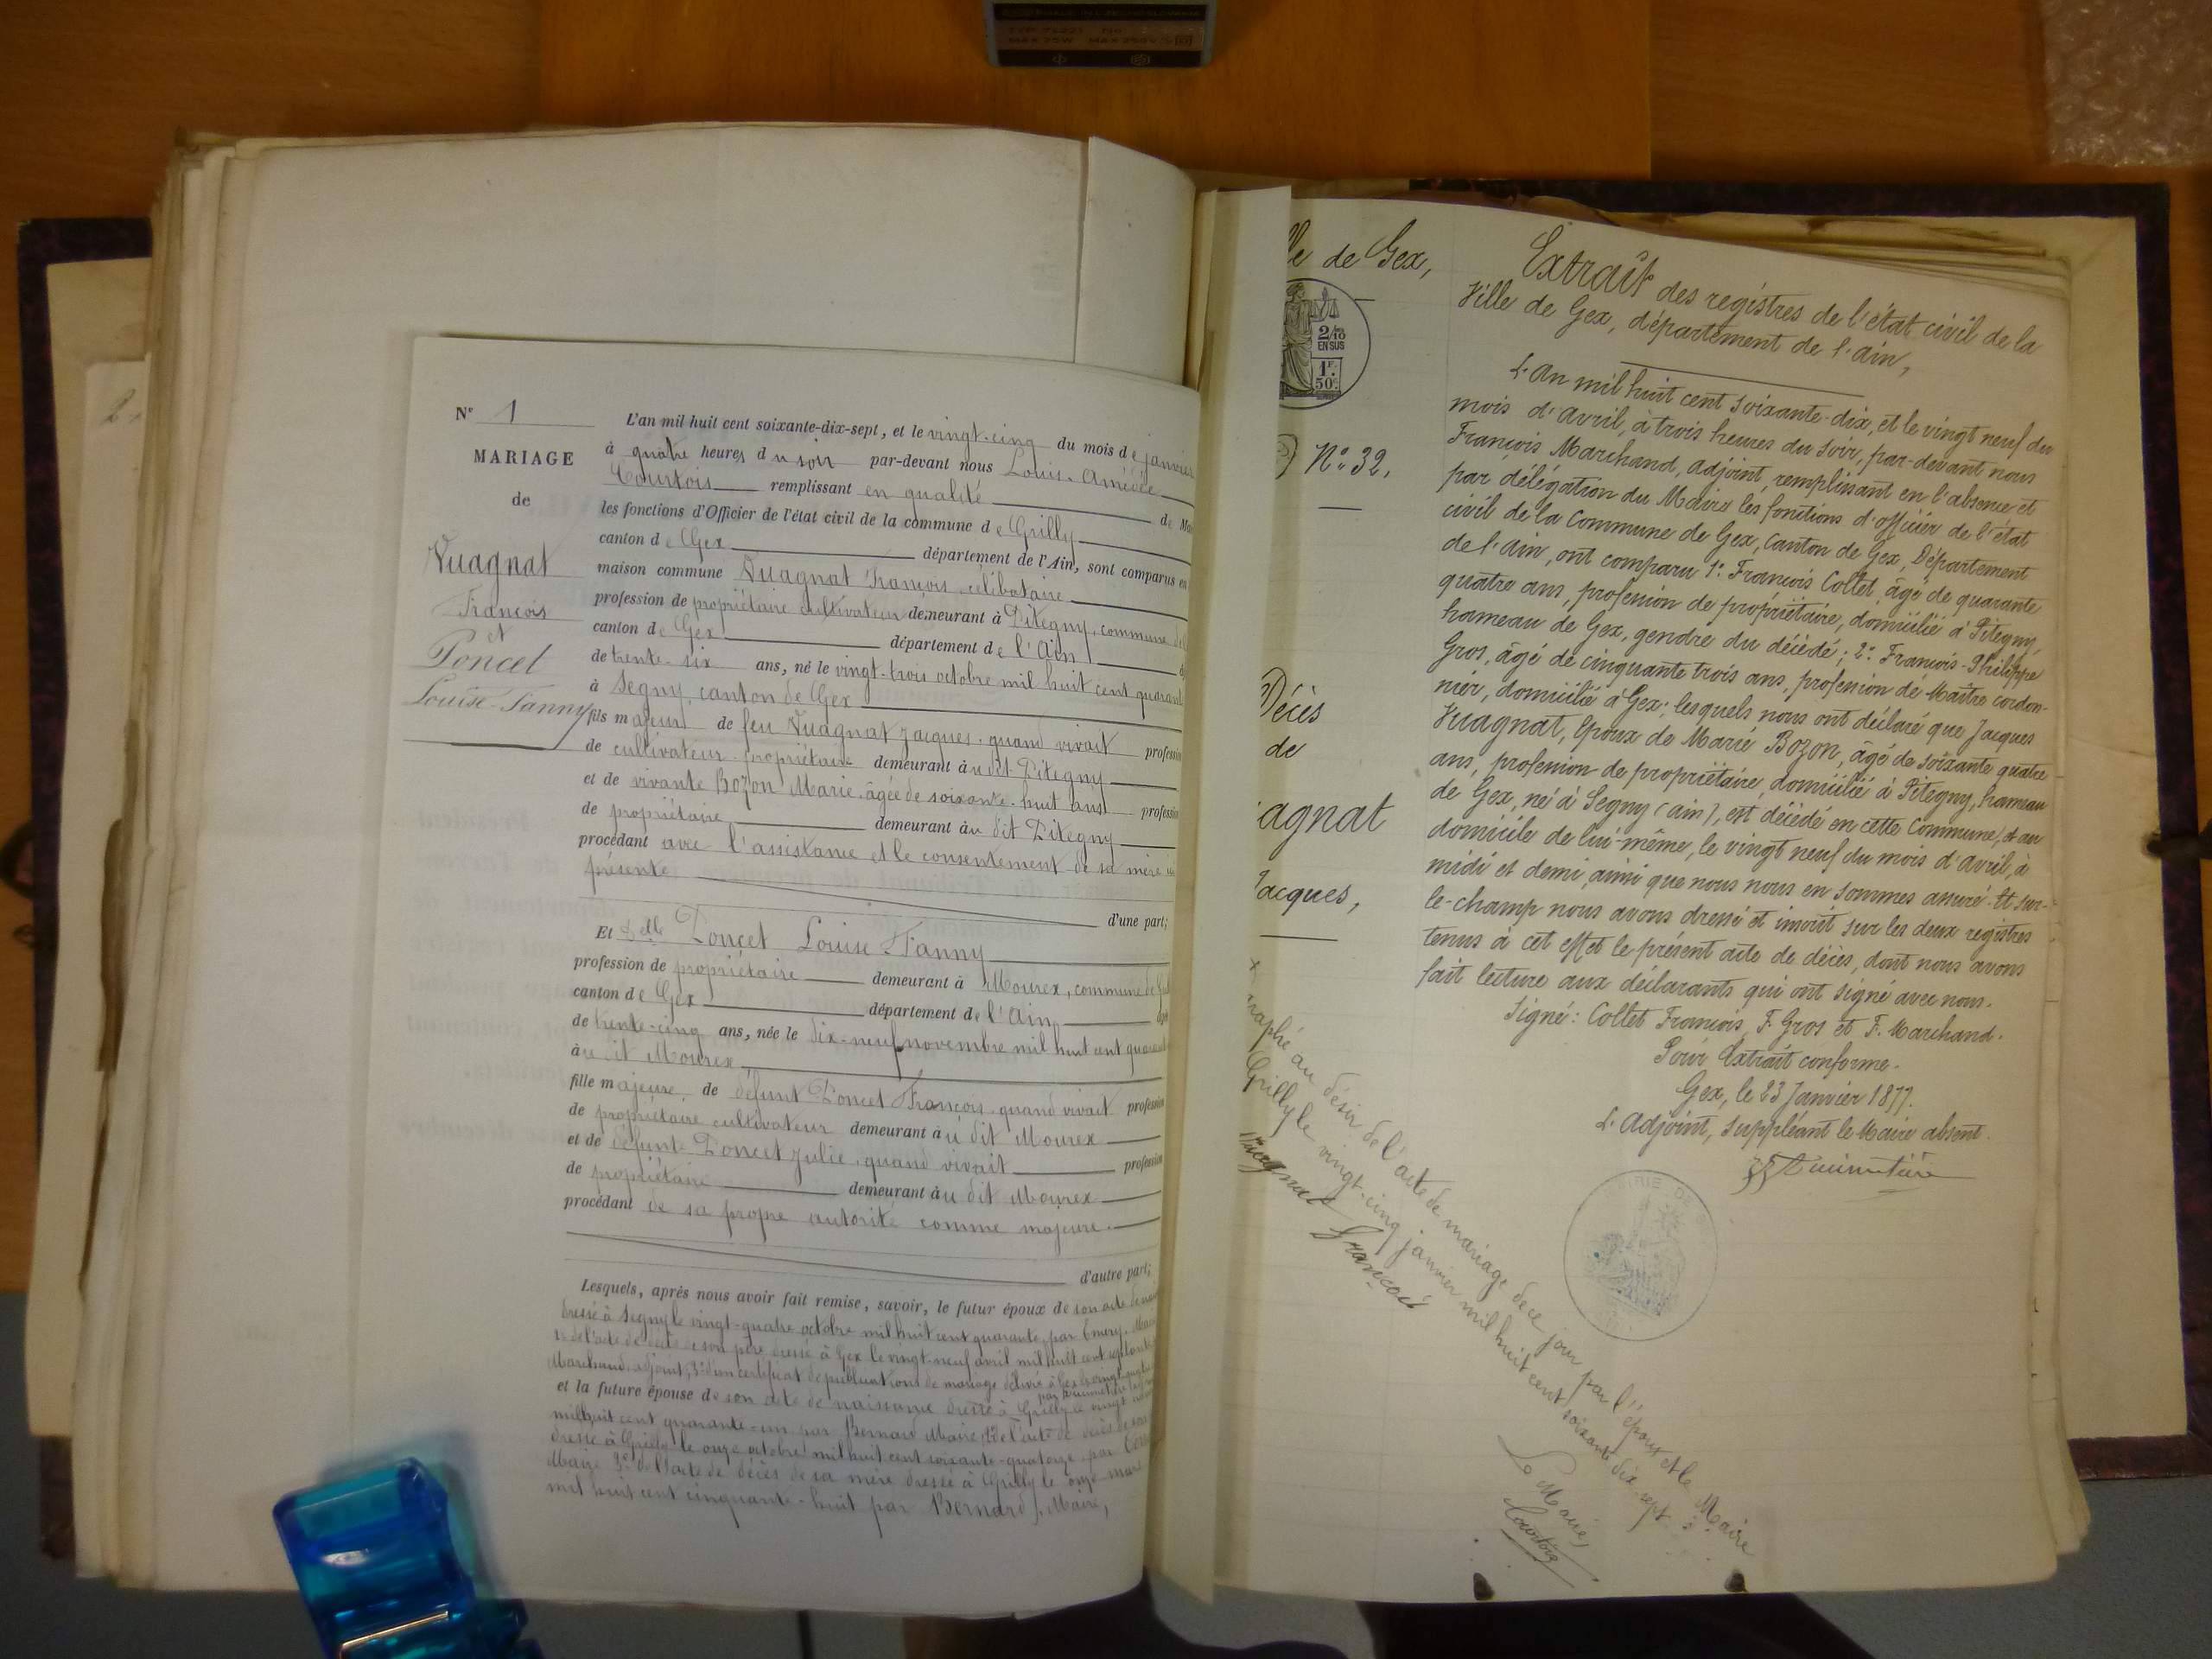 N° 1
MARIAGE
de
Vuagnat
François
et
Poncet
Louise-Fanny
L'an mil huit cent soixante-dix-sept, et le vingt-cinq du mois de janvier
à quatre heures du soir par-devant nous Louis-Amédée
Courtois remplissant en qualité de
les fonctions d'Officier de l'état civil de la commune de Grilly
canton de Gex département de l'Ain, sont comparus en
maison commune Vuagnat François célibataire
profession de propriétaire cultivateur demeurant à Pitegny, commune de
canton de Gex département de l'Ain
de trente-six ans, né le vingt-trois octobre mil huit cent quarante
à Segny canton de Gex
fils majeur de feu Vuagnat Jacques quand vivait profession
de cultivateur-propriétaire demeurant au dit Pitegny
et de vivante Bozon Marie âgée de soixante-huit ans profession
de propriétaire demeurant au dit Pitegny
procédant avec l'assistance et le consentement de sa mère ici
présente
d'une part;
Et Delle Poncet Louise Fanny
profession de propriétaire demeurant à Mourex, commune de
canton de Gex département de l'Ain
de trente-cinq ans, née le dix-neuf novembre mil huit cent quarante
au dit Mourex
fille majeure de défunt Poncet François quand vivait profession
de propriétaire cultivateur demeurant au dit Mourex
et de défunte Poncet Julie, quand vivait profession
de propriétaire demeurant au dit Mourex
procédant de sa propre autorité comme majeure.
d'autre part;
Lesquels, après nous avoir fait remise, savoir, le futur époux de son acte de
dressé à Segny le vingt-quatre octobre mil huit cent quarante par Emery, Maire
2° de l'acte de décès de son père dressé à Gex le vingt-neuf avril mil huit cent
Marchand, adjoint, 3° d'un certificat de publications de mariage délivré à Gex le
et la future épouse de son acte de naissance dressé à Grilly le vingt
mil huit cent quarante-un par Bernard Maire, 2° de l'acte de décès de son
dressé à Grilly le onze octobre mil huit cent soixante-quatorze par
Maire 3° de l'acte de décès de sa mère dressé à Grilly le onze mars
mil huit cent cinquante-huit par Bernard J. Maire,
lle de Gex,
2/10
EN SUS
1F.
50c.
N° 32.
Décès
de
agnat
Jacques,
Extrait des registres de l'état civil de la
Ville de Gex, département de l'ain,
L'an mil huit cent soixante-dix, et le vingt neuf du
mois d'avril, à trois heures du soir, par-devant nous
François Marchand, adjoint, remplissant en l'absence et
par délégation du Maire les fonctions d'officier de l'état
civil de la commune de Gex, Canton de Gex, Département
de l'ain, ont comparu 1° François Collet âgé de quarante
quatre ans, profession de propriétaire, domicilié à Pitegny,
hameau de Gex, gendre du décédé; 2° François-Philippe
Gros, âgé de cinquante trois ans, profession de Maître cordon-
nier, domicilié à Gex; lesquels nous ont déclaré que Jacques
Vuagnat, époux de Marie Bozon, âgé de soixante quatre
ans, profession de propriétaire, domicilié à Pitegny, hameau
de Gex, né à Segny (ain), est décédé en cette commune, et au
domicile de lui-même, le vingt neuf du mois d'avril, à
midi et demi, ainsi que nous nous en sommes assuré. Et sur-
le-champ nous avons dressé et inscrit sur les deux registres
tenus à cet effet le présent acte de décès, dont nous avons
fait lecture aux déclarants qui ont signé avec nous.
Signé: Collet François, F. Gros et F. Marchand.
Pour Extrait conforme.
Gex, le 23 Janvier 1877.
L'Adjoint, suppléant le Maire absent.
MAIRIE DE
raphé au désir de l'acte de mariage de ce jour par l'époux et le Maire
Grilly le vingt-cinq janvier mil huit cent soixante dix-sept
Vuagnat François
Le Maire,
Courtois